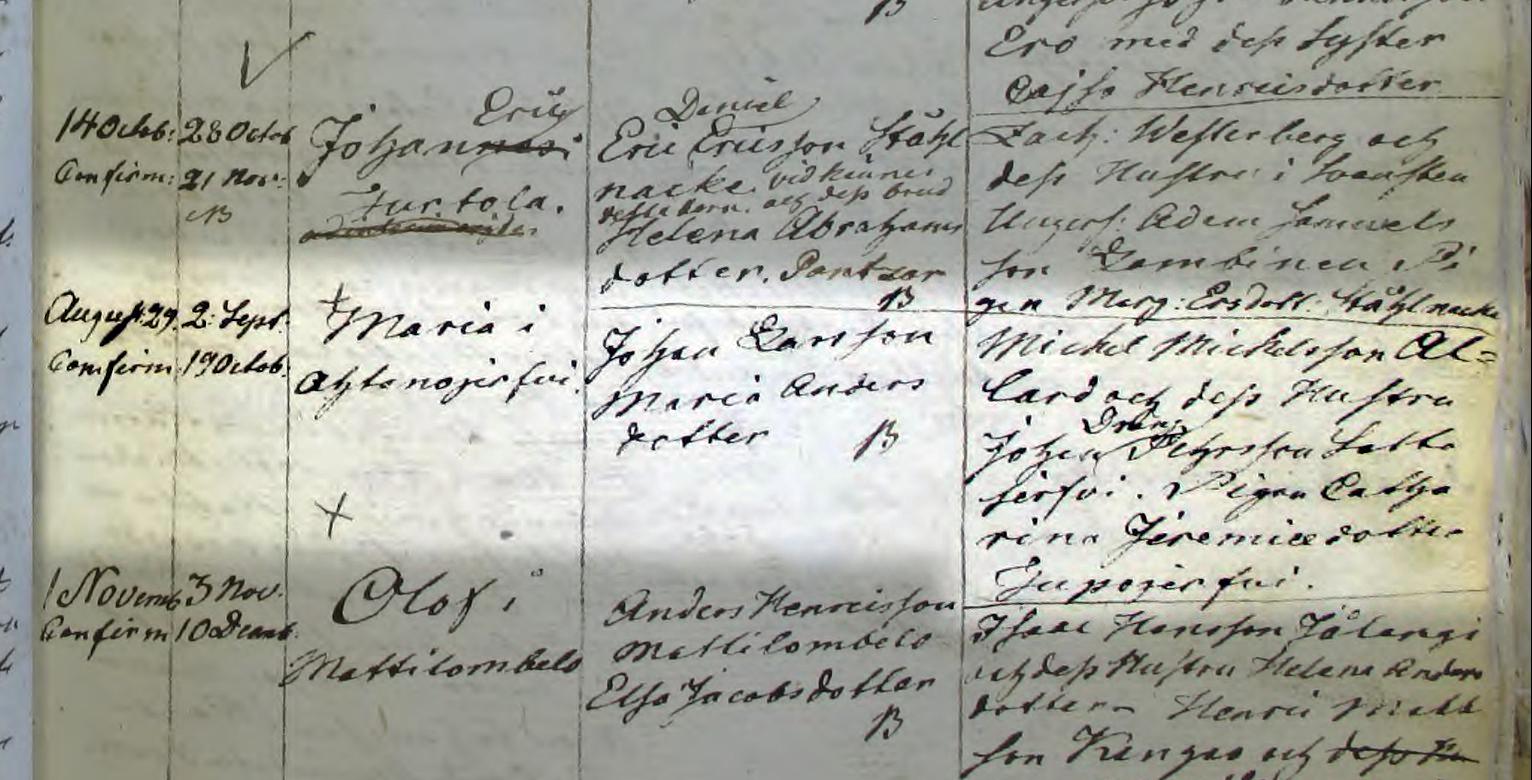 B
Ero med dess Syster
Cajsa Henricsdotter
14 Octob: 28 Octob
Confirm: 21 Nov:
B
Eric
Johannes i
Jurtola.
Daniel
Eric Ericsson Ståhl
nacke vidkännes
detta barn. och dess brud
Helena Abrahams
dotter. Pantzar
B
Zach: Westerberg och
dess Hustru i Svansten
Ungersv: Adam Samuels
son Lambinen Pi
gan Marg: Ersdott: Ståhlnacke
August: 29. 2: Sept:
Confirm: 19 Octob:
+
Maria i
Ahtonojerfvi.
Johan Larsson
Maria Anders
dotter
B
Michel Michelsson Al=
lard och dess Hustru
Dräng
Johan Pehrsson Latto
jerfvi. Pigan Catha
rina Jeremiædotter
Jupojerfvi.
+
1 Novemb 3 Nov.
Confirm 10 Decemb.
Olof i
Mattilombolo
Anders Henricsson
Mattilombolo
Elsa Jacobsdotter
B
Isaac Hansson Jålangi
och dess Hustru Helena Anders
dotter Henric Matts
son Kangas och dess